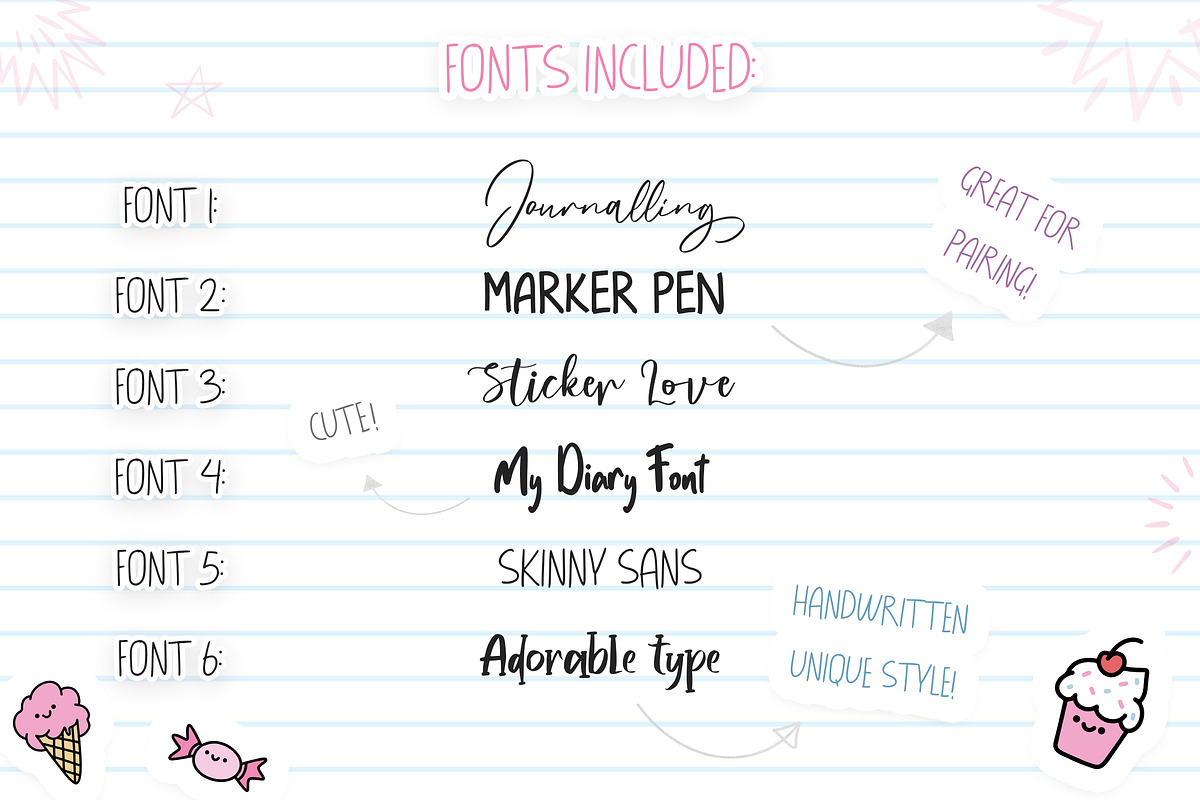 FONTS INCLUDED:
FONT 1:
Journalling
GREAT FOR
PAIRING!
FONT 2:
MARKER PEN
FONT 3:
Sticker Love
CUTE!
FONT 4:
My Diary Font
FONT 5:
SKINNY SANS
HANDWRITTEN
UNIQUE STYLE!
FONT 6:
Adorable type